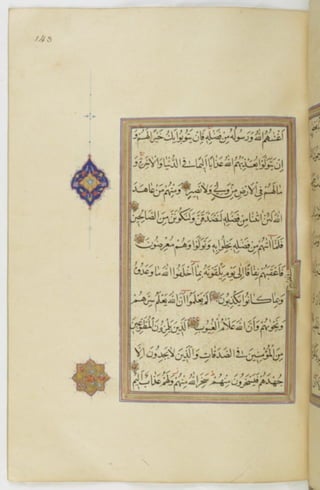 143
اغنىهم الله ورسوله من فضله فان يتوبوا يك خيرا لهم و
ان يتولوا يعذبهم الله عذابا اليما في الدنيا والاخرة و
مالهم في الارض من ولي ولا نصير ومنهم من عاهد
الله لئن اتانا من فضله لنصدقن ولنكونن من الصالحين
فلما اتيهم من فضله بخلوا به وتولوا وهم معرضون
فاعقبهم نفاقا في قلوبهم الى يوم يلقونه بما اخلفوا الله ما وعدوه
وبما كانوا يكذبون الم يعلموا ان الله يعلم سرهم
ونجويهم وان الله علام الغيوب الذين يلمزون المطوعين
من المؤمنين في الصدقات والذين لا يجدون الا
جهدهم فيسخرون منهم سخر الله منهم ولهم عذاب اليم